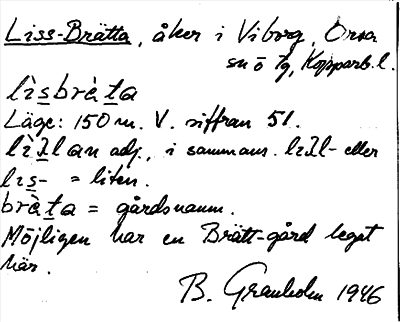 Liss-Brätta, åker i Viborg, Orsa
sn ö tg, Kopparb.l.
lìsbrèta
Läge: 150 m. V. siffran 51.
lìllan adj., i sammans. lɩll- eller
lɩs- = liten.
brèta = gårdsnamn.
Möjligen har en Brätt-gård legat
här.
B. Granholm 1946